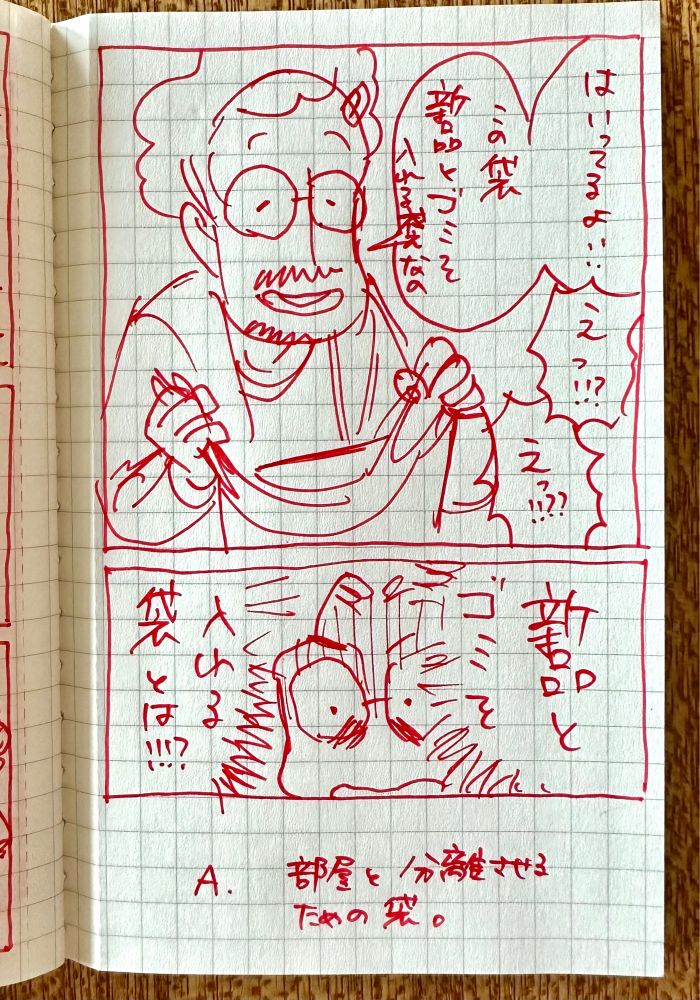 はいってるよ…
この袋
新品とゴミを
入れる袋なの
えっ!!?
えっ!!??
新品と
ゴミを
入れる
袋とは!!!?
A. 部屋と分離させる
ための袋。